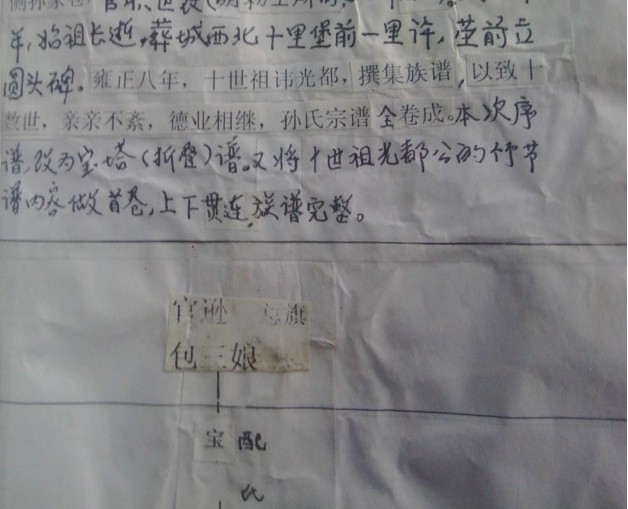 年，始祖长逝，葬城西北十里堡前一里许，茔前立
圆头碑。雍正八年，十世祖讳光都，撰集族谱，以致十
数世，亲亲不紊，德业相继，孙氏宗谱全卷成。本次序
谱，改为宝塔（折叠）谱。又将十世祖光都公的竹节
谱内容做首卷，上下贯连，族谱完整。
官逊 总旗
包三娘
宝 配
氏